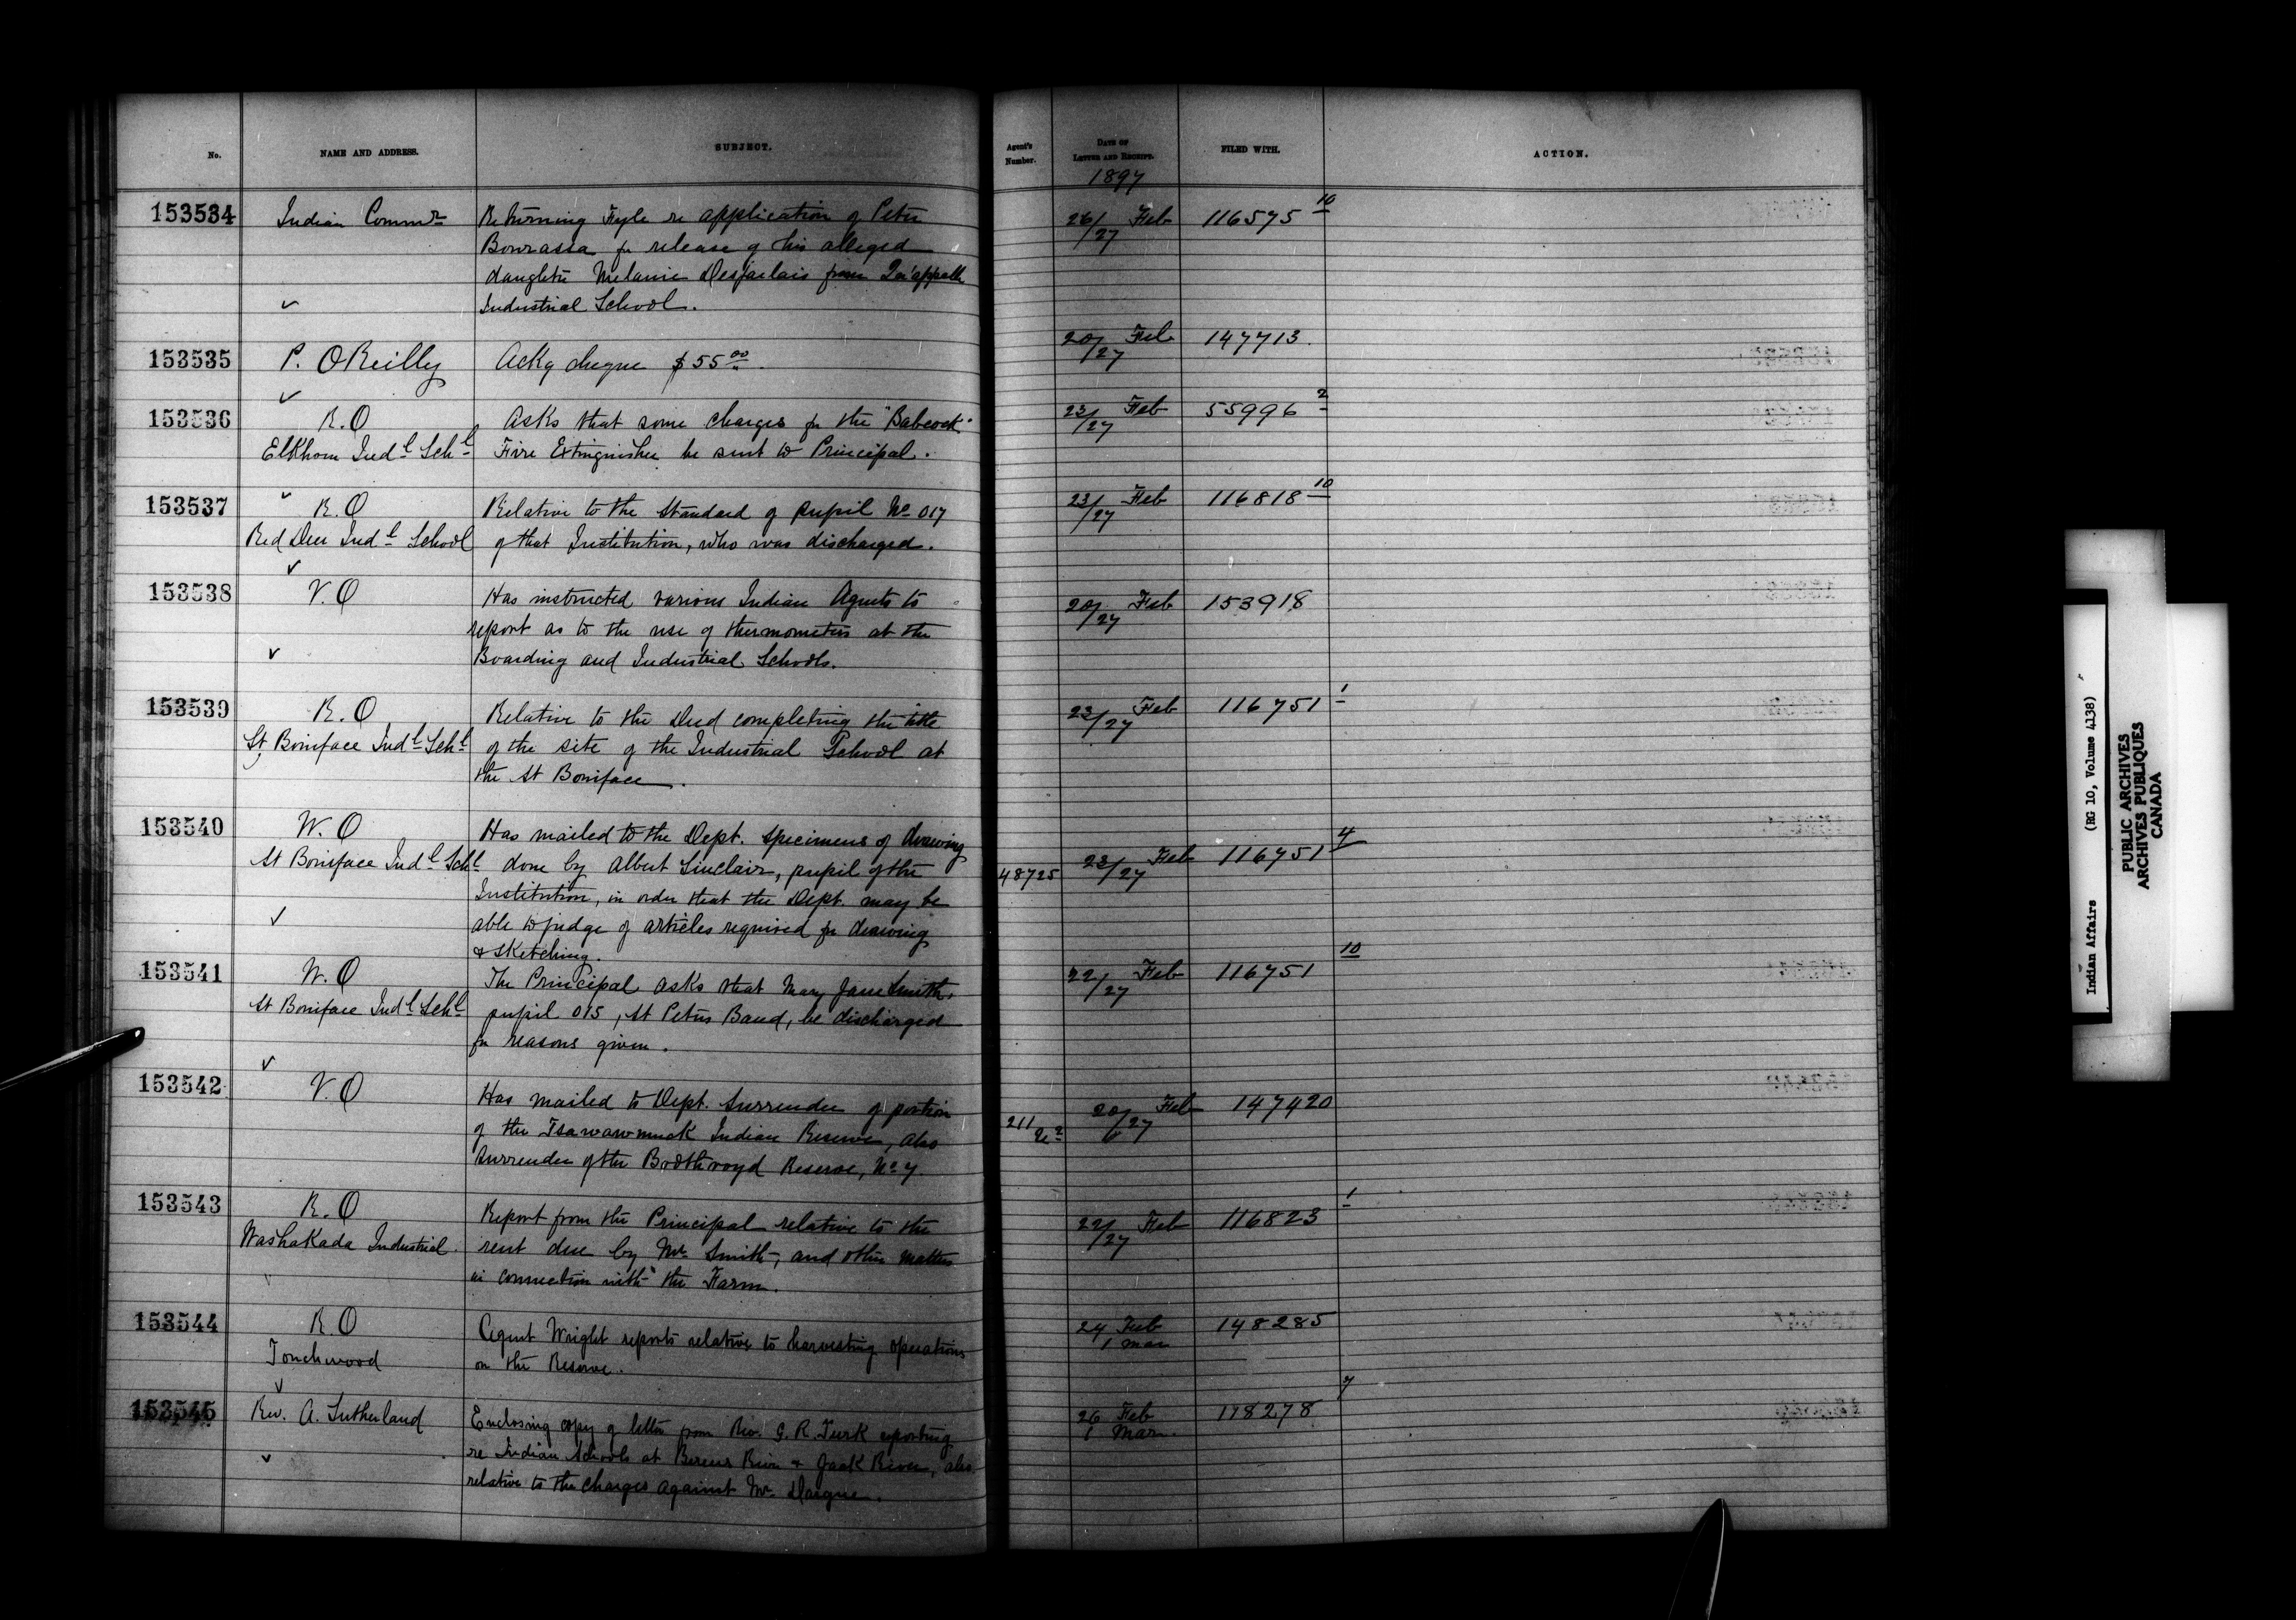 No. NAME AND ADDRESS. SUBJECT. Agent's Number. DATE OF LETTER AND RECEIPT. FILED WITH. ACTION.
1897
153534 Indian Commr Returning Fyle re application of Peter 26/27 Feb 116575 10
Bourassa for release of his alleged
daughter Melanie Desjarlais from Qu'appelle
✓ Industrial School.
153535 P. OReilly Ackg cheque $55 00. 20/27 Feb 147713.
✓
153536 R.O Asks that some charges for the "Babcock" 23/27 Feb 55996 2
Elkhorn Indl Schl Fire Extinguisher be sent to Principal.
✓
153537 R.O Relative to the standard of pupil No 017 23/27 Feb 116818 10
Red Deer Indl School of that Institution, who was discharged.
✓
153538 V.O Has instructed various Indian Agents to 20/27 Feb 153918
report as to the use of thermometers at the
✓ Boarding and Industrial Schools.
153539 R.O Relative to the Deed completing the title 23/27 Feb 116751 1
St Boniface Indl Schl of the site of the Industrial School at
the St Boniface.
153540 W.O Has mailed to the Dept. specimens of drawing
St Boniface Indl Schl done by Albert Sinclair, pupil of the 48725 23/27 Feb 116751 4
Institution, in order that the Dept. may be
✓ able to judge of articles required for drawing
& sketching.
153541 W.O The Principal asks that Mary Jane Smith, 22/27 Feb 116751 10
St Boniface Indl Schl pupil 015, St Peters Band, be discharged
for reasons given.
✓
153542 V.O Has mailed to Dept. surrender of portion 20/27 Feb 147420
of the Tsawawmuck Indian Reserve, also 211
surrender of the Boothroyd Reserve, No 7.
153543 R.O Report from the Principal relative to the 22/27 Feb 116823 1
Washakada Industrial. rent due by Mr Smith, and other matters
in connection with the Farm.
153544 R.O Agent Wright reports relative to harvesting operations 24 Feb 148285
Touchwood on the Reserve. 1 Mar
✓
153545 Rev. A. Sutherland Enclosing copy of letter from Rev. G. R. Turk reporting 26 Feb 118278 7
re Indian Schools at Berens River & Jack River, also 1 Mar.
✓ relative to the charges against Mr
Indian Affairs (RG 10, Volume 4138)
PUBLIC ARCHIVES
ARCHIVES PUBLIQUES
CANADA